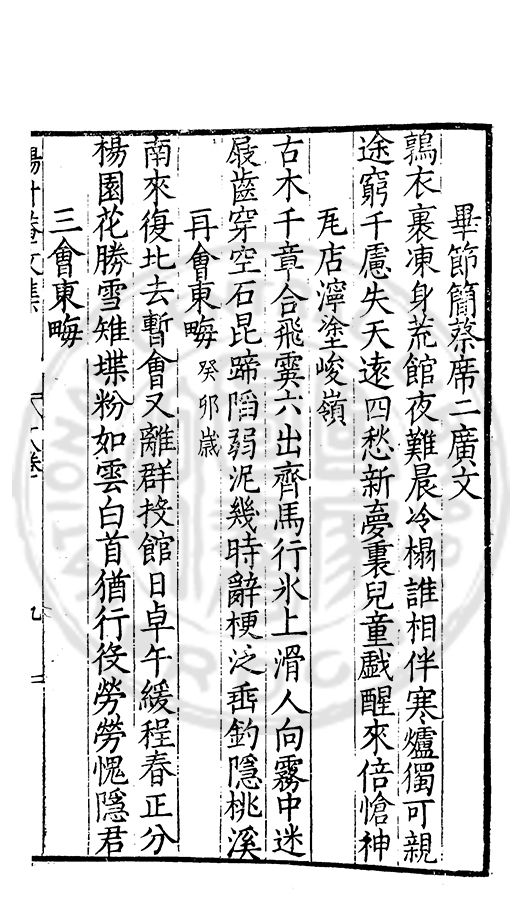 畢節簡蔡席二廣文
鶉衣裹凍身荒館夜難晨冷榻誰相伴寒爐獨可親
途窮千慮失天遠四愁新夢裏兒童戲醒來倍愴神
瓦店濘塗峻嶺
古木千章合飛霙六出齊馬行氷上滑人向霧中迷
屐齒穿空石昆蹄陷弱泥幾時辭梗泛垂釣隱桃溪
再會東畮 癸卯歲
南來復北去暫會又離群投館日卓午緩程春正分
楊園花勝雪雉堞粉如雲白首猶行役勞勞愧隱君
三會東畮